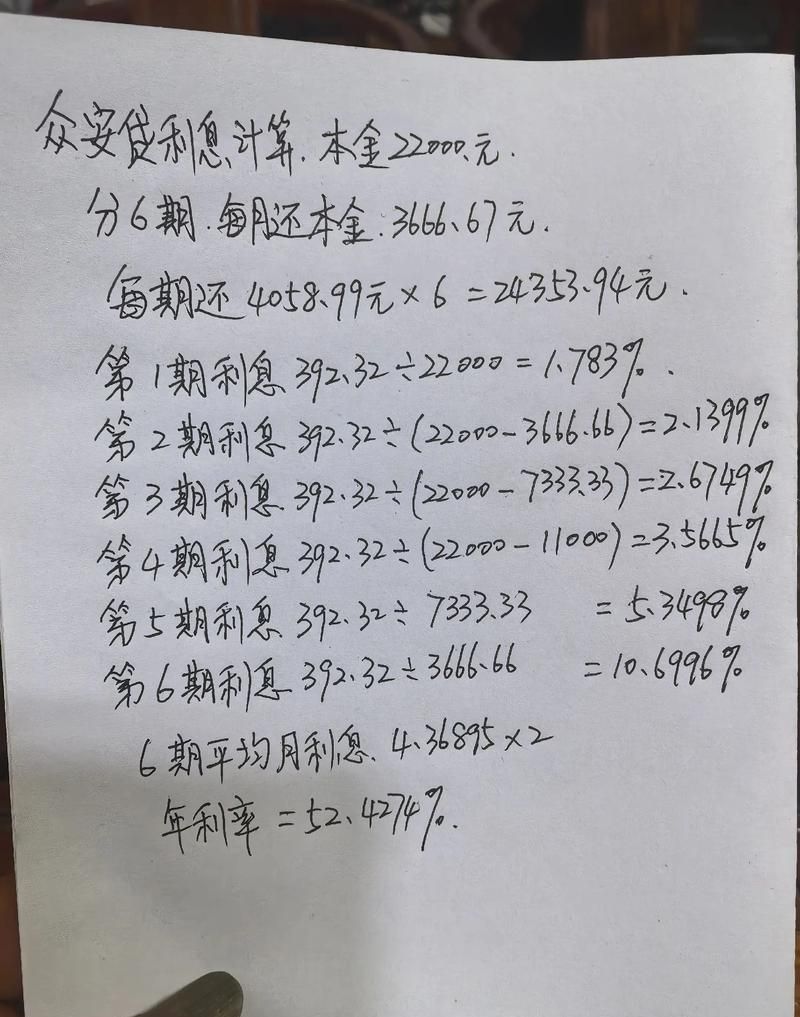 众安贷利息计算.本金22000.元.
分6期.每月还本金.3666.67元.
每期还4058.99元×6=24353.94元.
第1期利息392.32÷22000=1.783%.
第2期利息392.32÷(22000-3666.66)=2.1399%
第3期利息392.32÷(22000-7333.33)=2.6749%
第4期利息392.32÷(22000-11000)=3.5665%
第5期利息392.32÷7333.33=5.3498%
第6期利息392.32÷3666.66=10.6996%
6期平均月利息.4.36895×2
年利率=52.4274%.